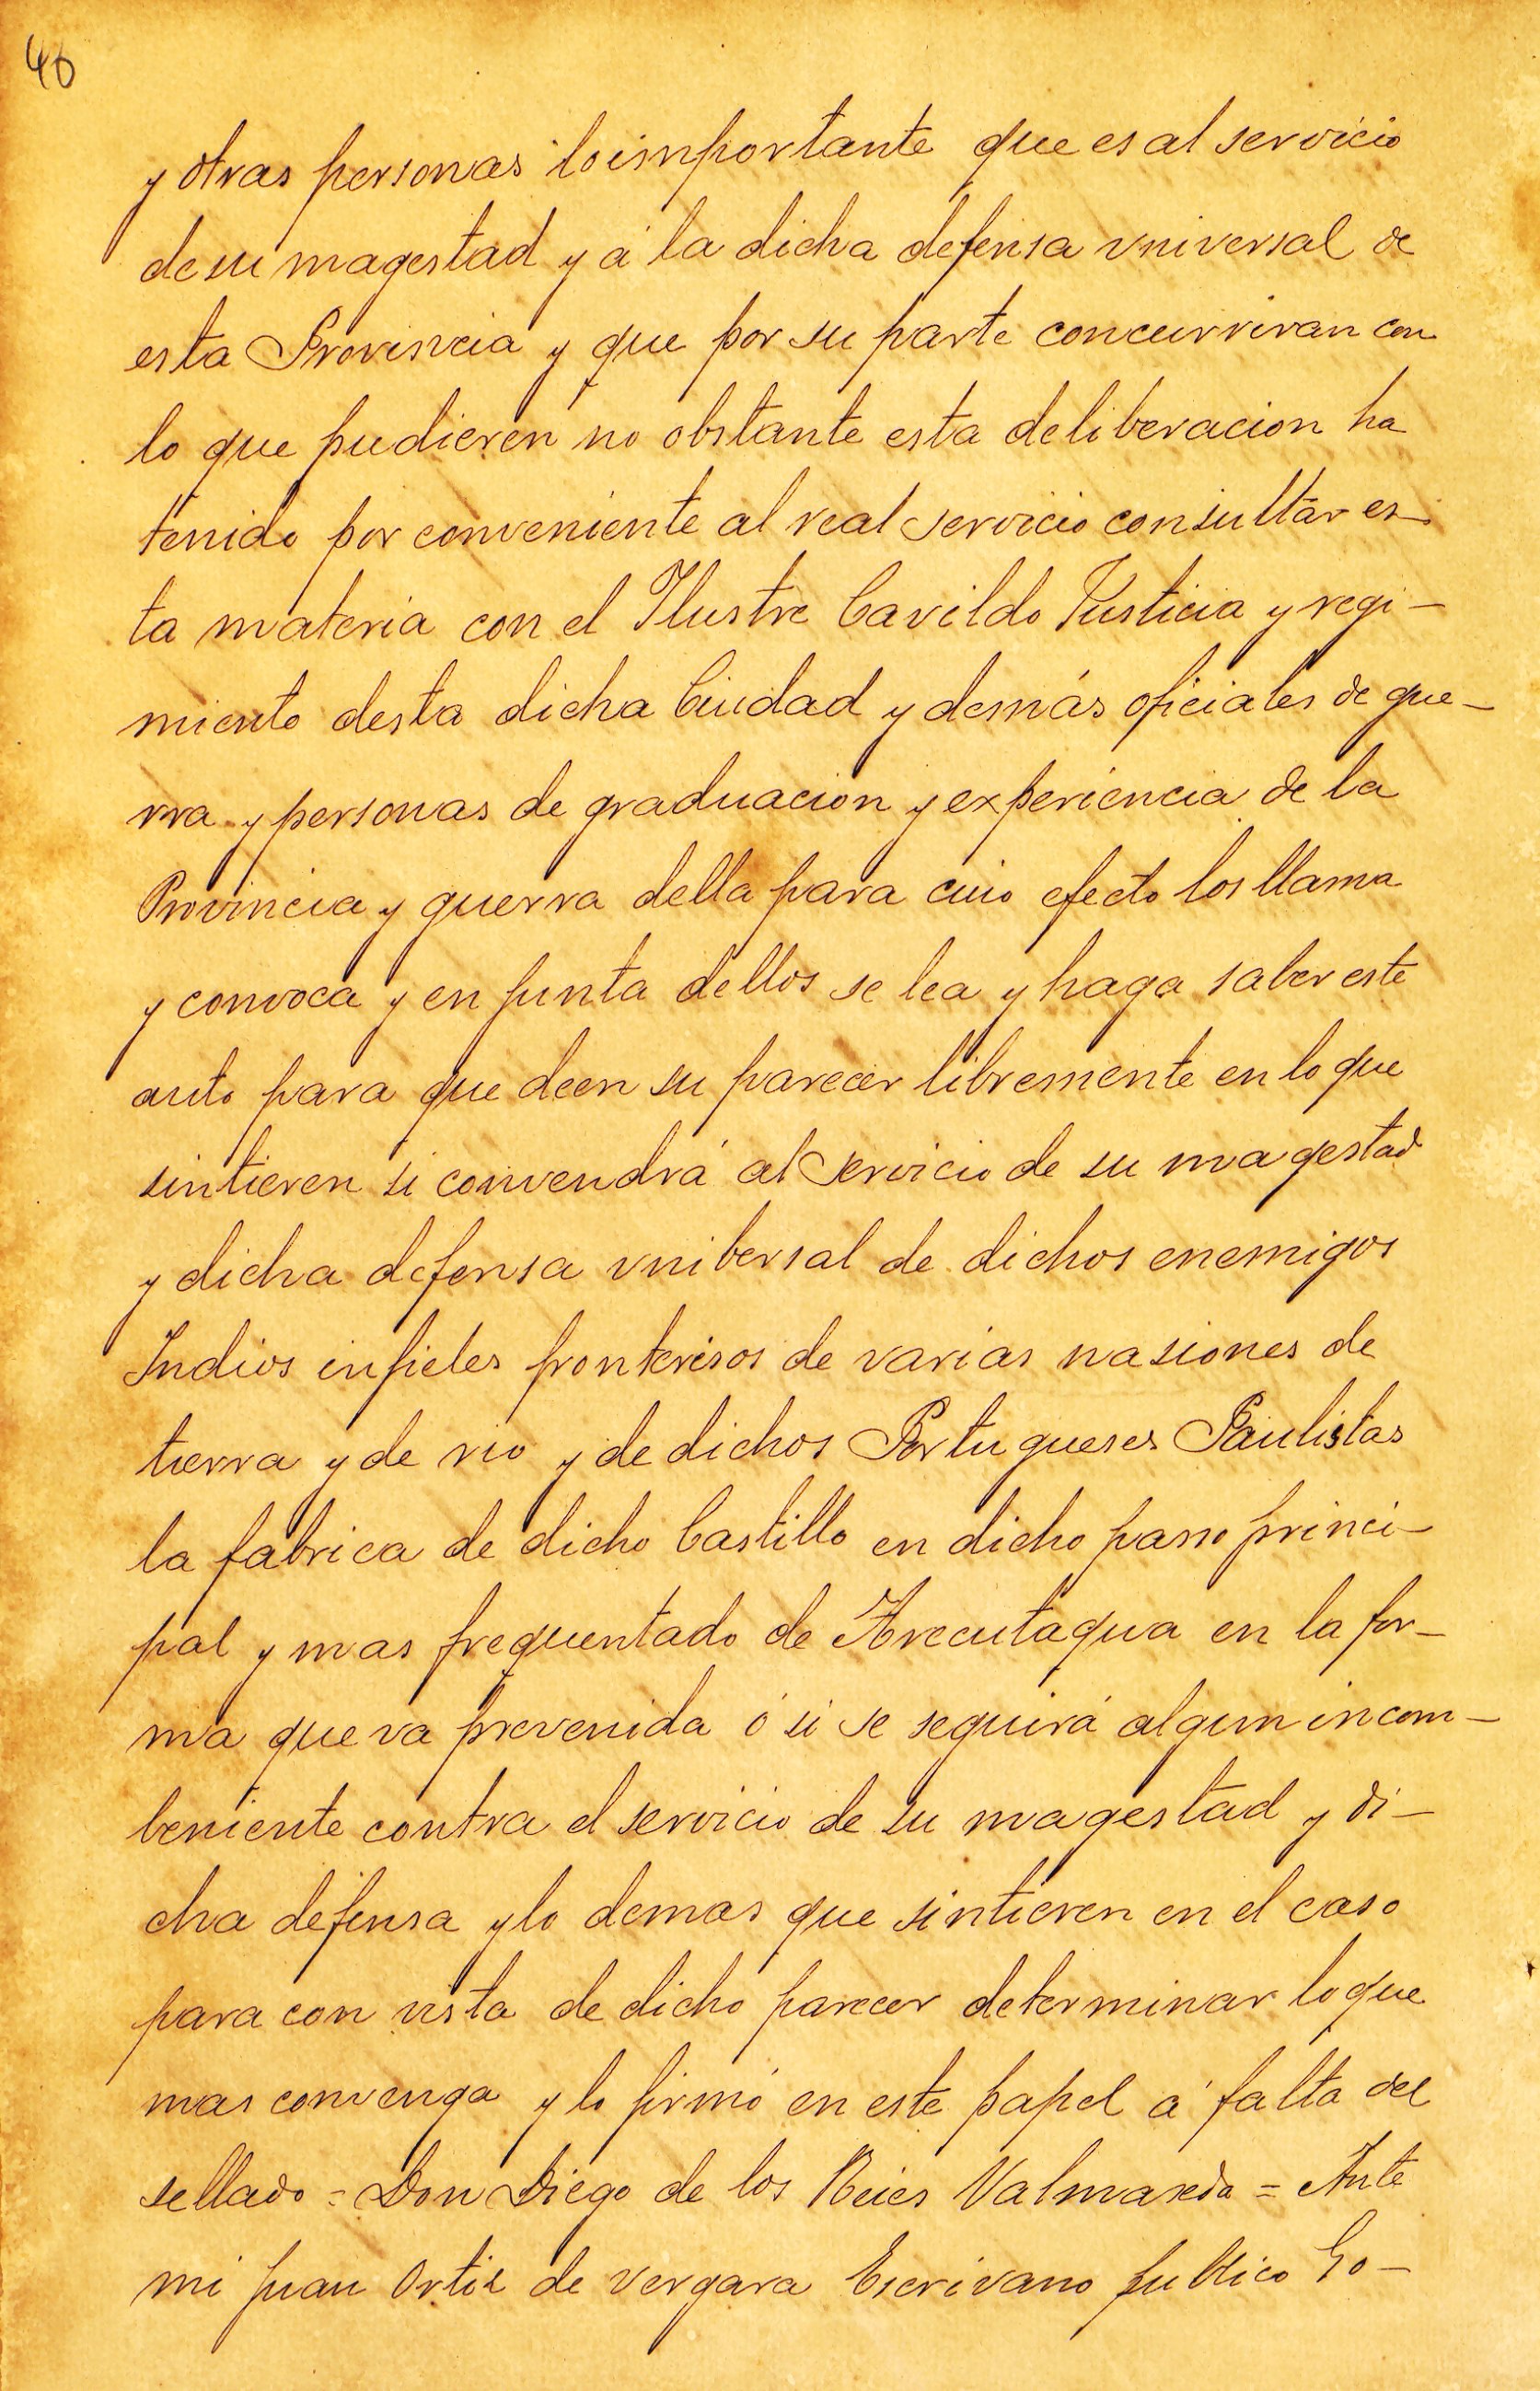 46
y otras personas lo importante que es al servicio
de su magestad y á la dicha defensa vniversal de
esta Provincia y que por su parte concurriran con
lo que pudieren no obstante esta deliberacion ha
tenido por conveniente al real servicio consultár es-
ta materia con el Ilustre Cavildo Justicia y regi-
miento desta dicha Ciudad y demás oficiales de gue-
rra y personas de graduacion y experiencia de la
Provincia y guerra della para cuio efecto los llama
y convoca y en junta dellos se lea y haga saber este
auto para que deen su parecer libremente en lo que
sintieren si convendrá al servicio de su magestad
y dicha defensa vnibersal de dichos enemigos
Indios infieles fronterisos de varias nasiones de
tierra y de rio y de dichos Portugueses Paulistas
la fabrica de dicho Castillo en dicho passo princi-
pal y mas frequentado de Arecutagua en la for-
ma que va prevenida ó si se seguirá algun incom-
beniente contra el servicio de su magestad y di-
cha defensa y lo demas que sintieren en el caso
para con vista de dicho parecer determinar lo que
mas convenga y lo firmó en este papel á falta del
sellado = Don Diego de los Reies Valmaseda = Ante
mi Juan Ortiz de vergara Escrivano publico Go-